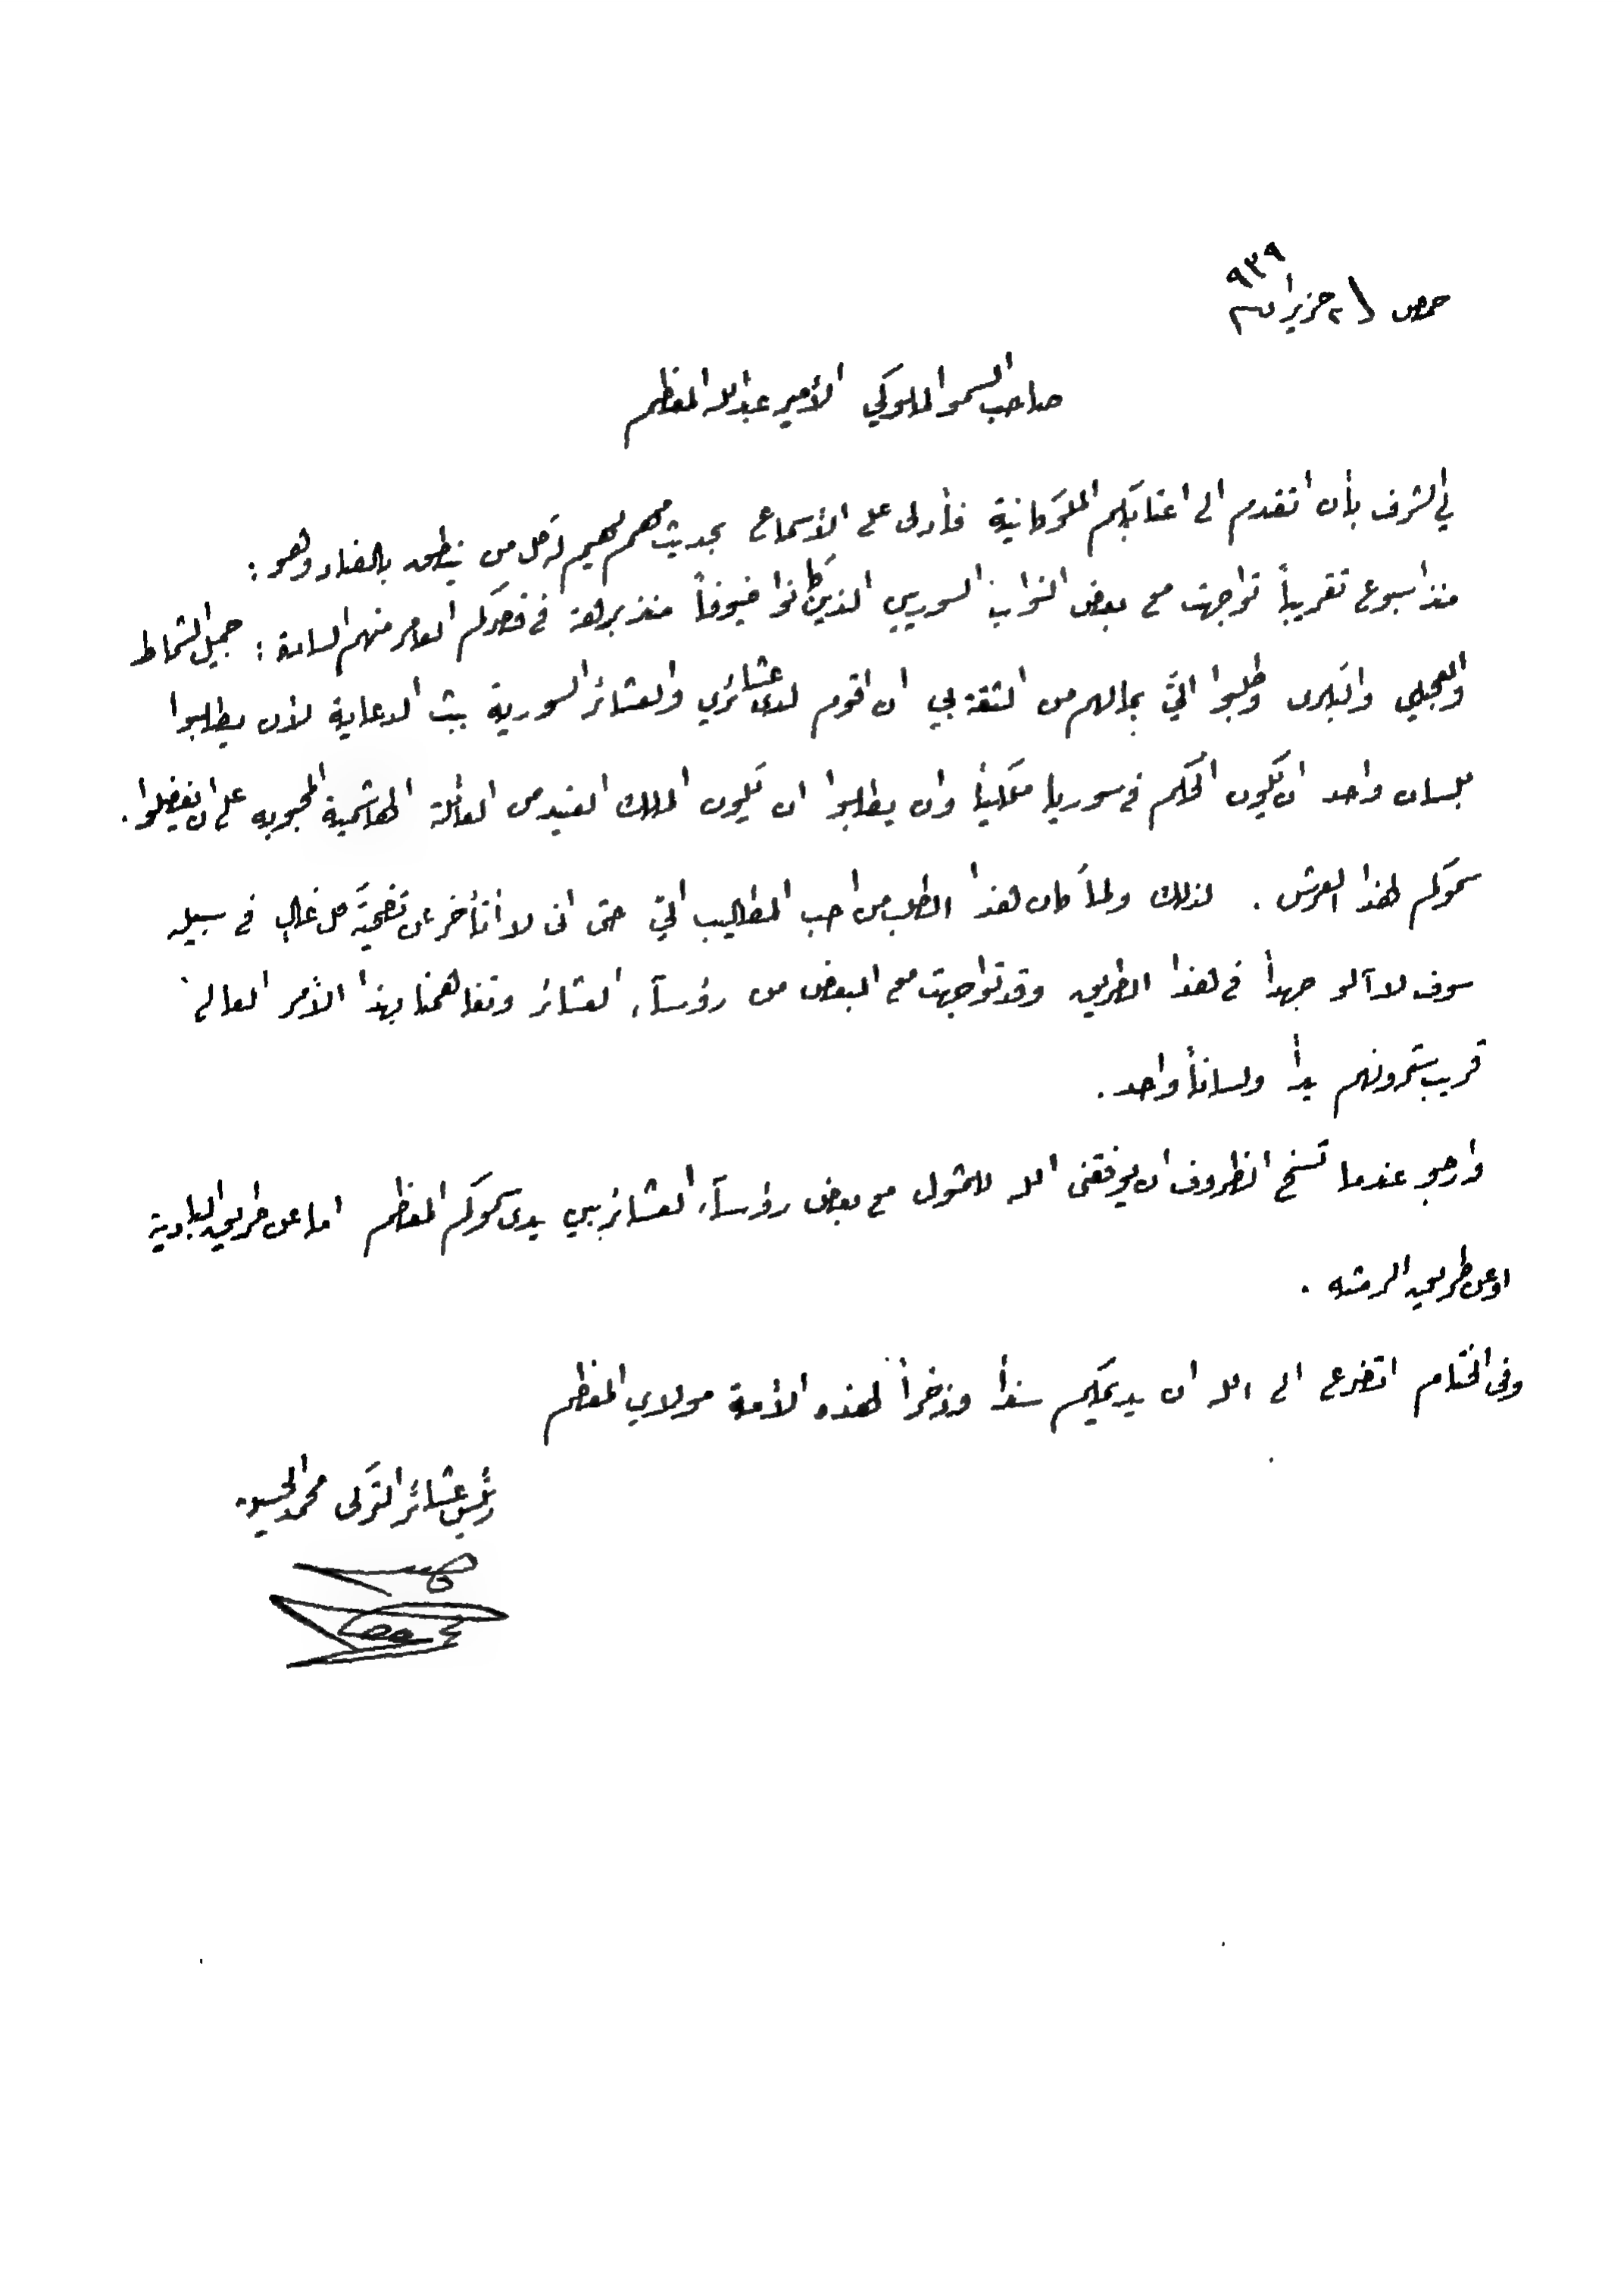 حمص ٢١ حزيران سنة ٩٣٩
صاحب السمو الملوكي الأمير عبدالله المعظم
لي الشرف بأن اتقدم الى اعتابكم الملوكانية فأدلى على الأسماع بحديث مهم يهم كل من ينطق بالضاد وهو :
منذ اسبوع تقريباً تواجهت مع بعض النواب السوريين الذين كانوا ضيوفاً منذ برهة في قصركم العامر منهم السادة : جميل الشماط
والعجيلي والبكرى وطلبوا اليَّ بمالهم من الثقة بي ان اقوم لدى عشائري والعشائر السورية ببث الدعاية لأن يطلبوا
بلسان واحد ان يكون الحكم في سوريا ملكياً وان يطلبوا ان يكون الملك العتيد من العائلة الهاشمية المحبوبه على ان تفضلوا .
سموكم لهذا العرش . لذلك ولما كان هذا الطلب من احب المطاليب اليّ حتى انى لا أتأخر عن تضحية كل غالٍ في سبيله
سوف لا آلو جهداً في هذا الطريق وقد تواجهت مع البعض من رؤسآء العشائر وتفاهمنا بهذا الأمر العالي
قريب سترونهم يداً ولساناً واحد .
وارجو عندما تسنح الظروف ان يوفقنى الله للمثول مع بعض رؤسآء العشائر بين يدى سموكم المعظم اما عن طريق البادية
او عن طريق الرمثه .
وفى الختام اتضرع الى الله ان يديمكم سنداً وذخراً لهذه الأمة مولاي المعظم
رئيس عشائر التركى محمد الحسين